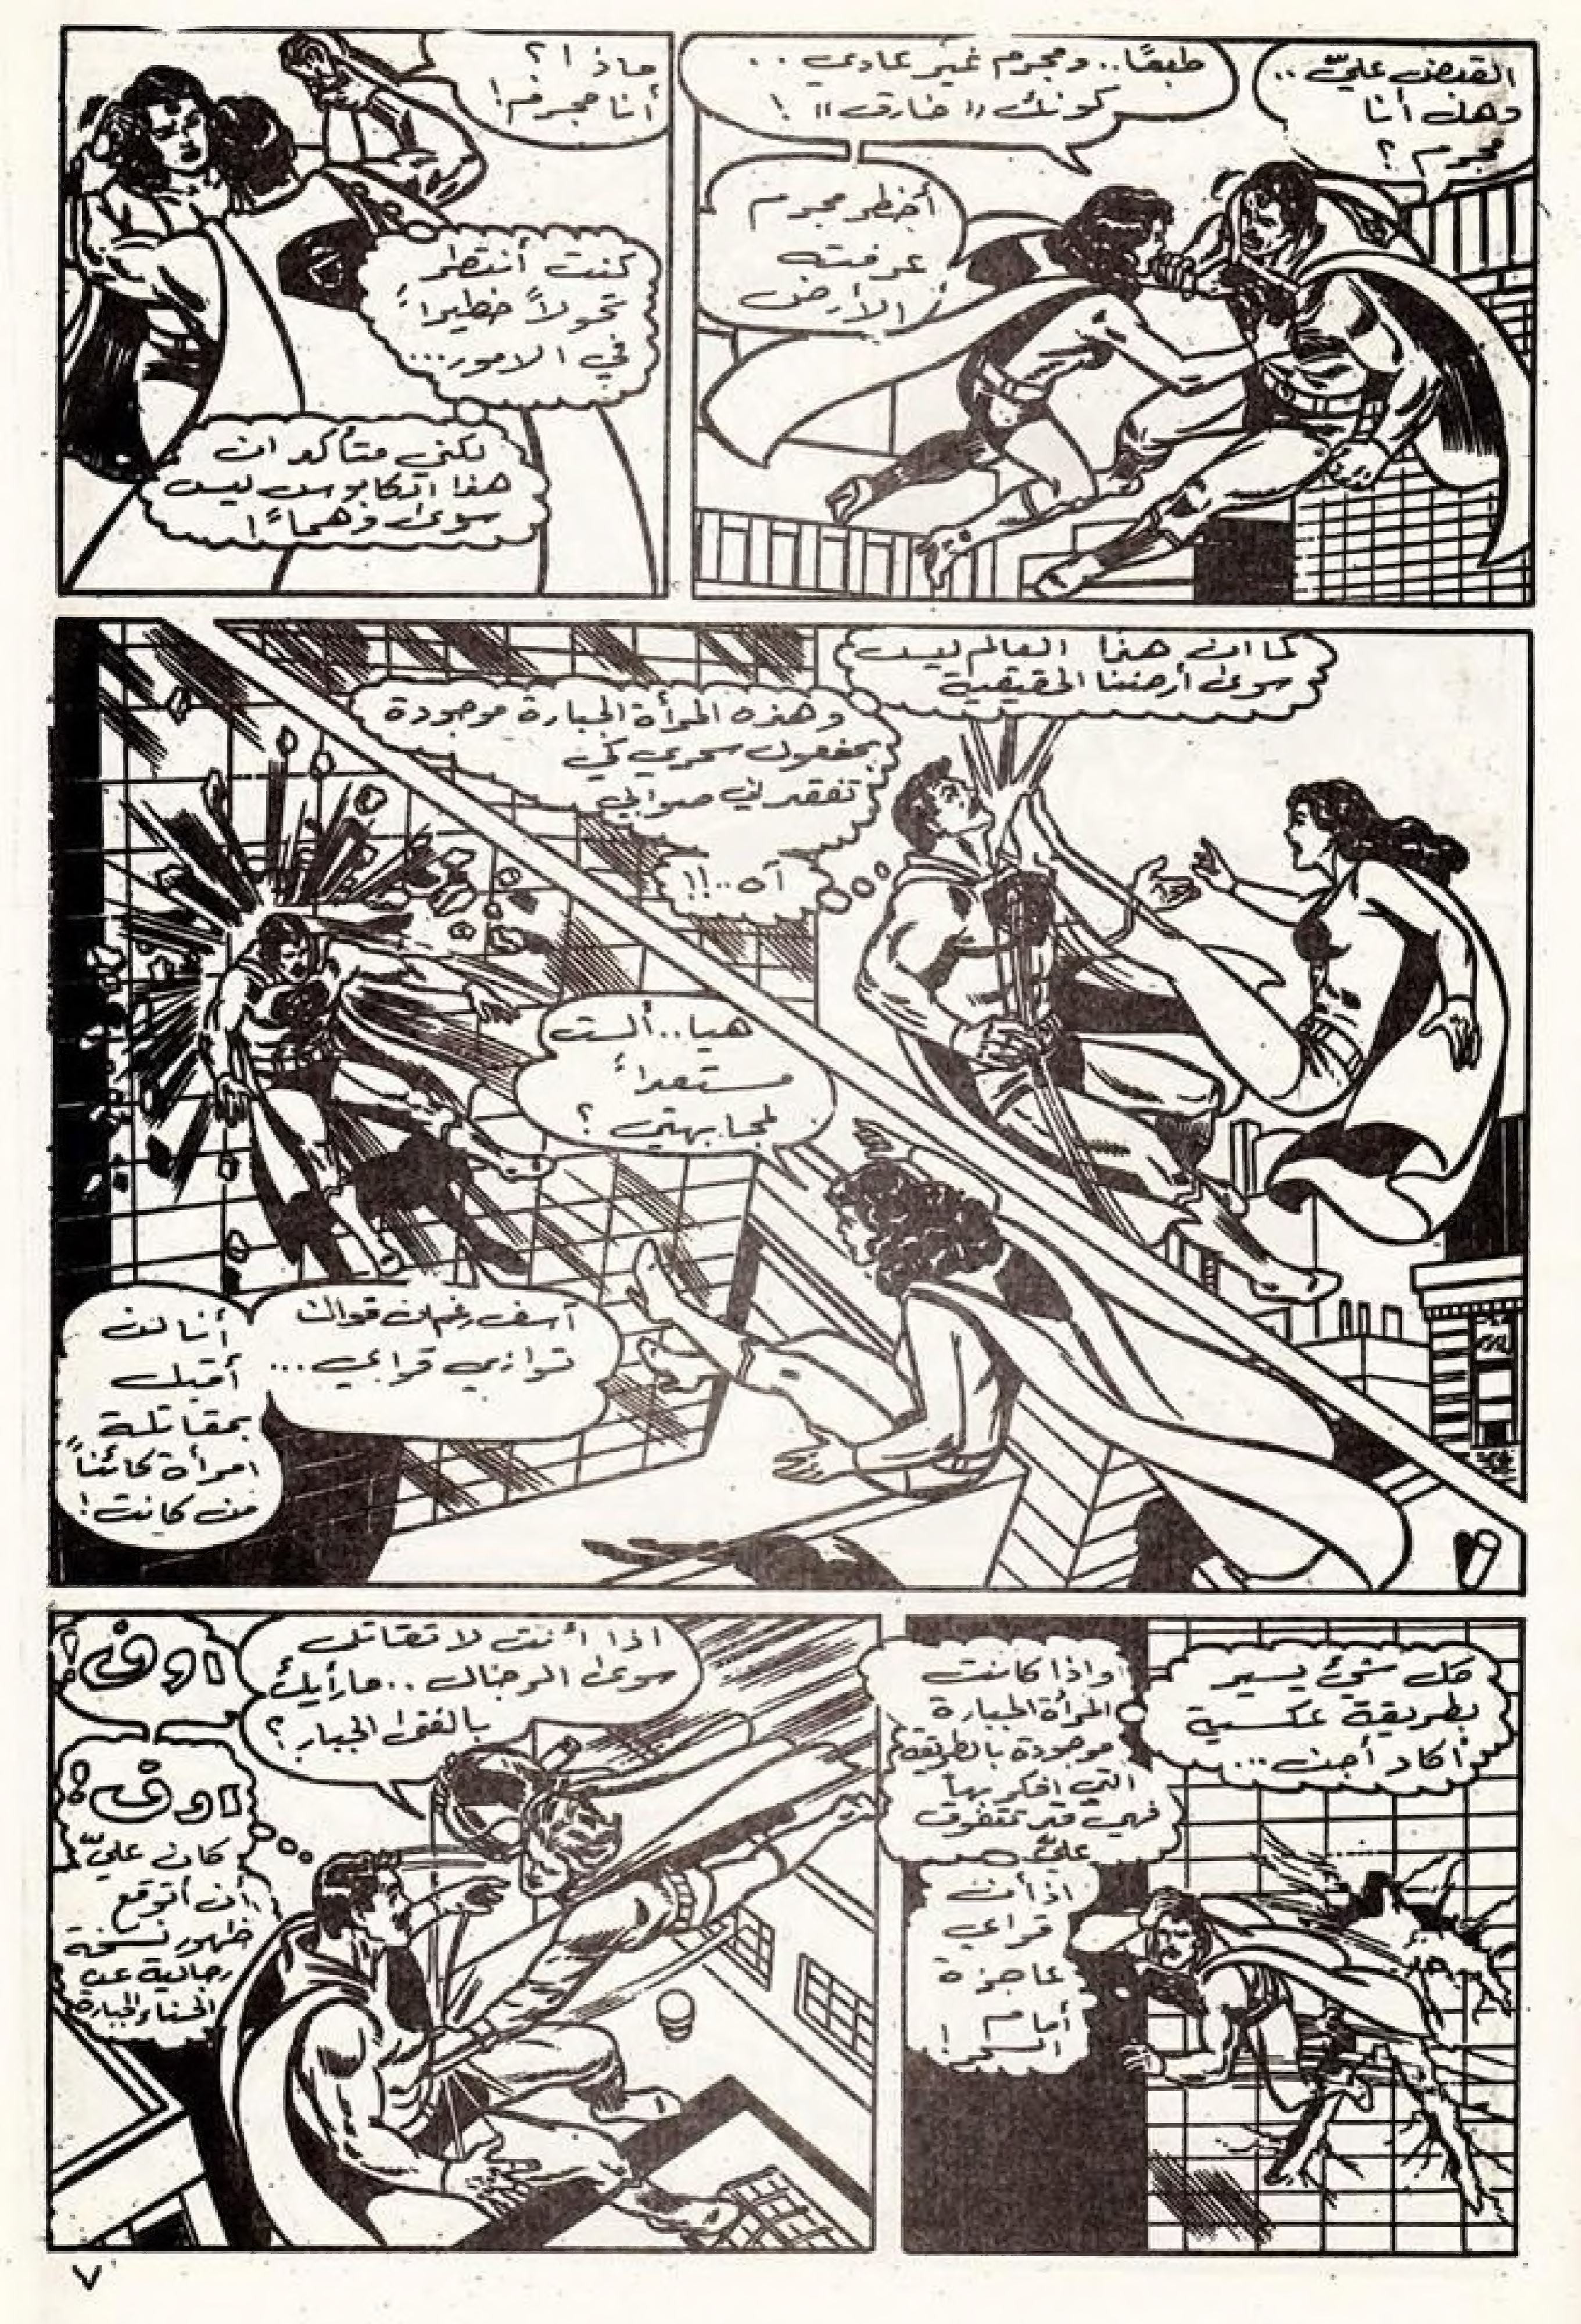 القبض عليّ..
وهل أنا
مجرم ؟
طبعًا.. ومجرم غير عادي..
كونك "خارق" !
أخطر مجرم
عرفته
الأرض
ماذا ؟
أنا مجرم !
كنت أنتظر
تحولاً خطيراً
في الامور...
لكني متأكد ان
هذا الكابوس ليس
سوى وهماً !
كما ان هذا العالم ليس
سوى أرضنا الحقيقية
وهذه المرأة الجبارة موجودة
بمفعول سحري كي
تفقدني صوابي
آه..!!
هيا.. ألست
مستعداً
لمجابهتي ؟
آسف رغم ان قواك
توازي قواي...
أنا لن
أقبل
بمقاتلة
امرأة كائناً
من كانت !
كل شيء يسير
بطريقة عكسية
أكاد أجن...
واذا كانت
المرأة الجبارة
موجودة بالطريقة
التي افكر بها
فهي قد تتفوق
عليّ
اذ أن
قواي
عاجزة
أمام
السحر !
اذا أنت لا تقاتل
سوى الرجال.. ما رأيك
بالفتى الجبار ؟
اوف !
اوف !
كان عليّ
أن أتوقع
ظهور نسخة
رجالية عن
الحسناء الجبارة
٧